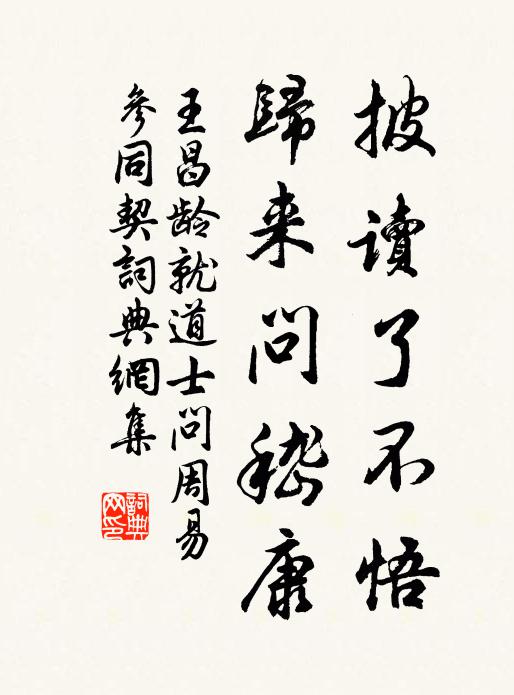 披讀了不悟
歸来問嵇康
王昌龄就道士問周易
參同契詞典網集
詞典
网印